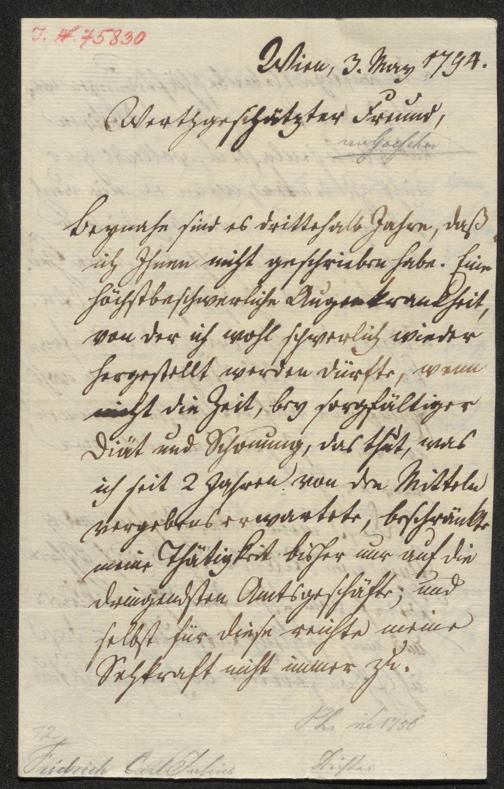 I. N. 75830
Wien, 3. May 1794.
Werthgeschätzter Freund,
Beynahe sind es drittehalb Jahre, daß
ich Ihnen nicht geschrieben habe. Eine
höchstbeschwerliche Augenkrankheit,
von der ich wohl schwerlich wieder
hergestellt werden dürfte, wenn
nicht die Zeit, bey sorgfältiger
Diät und Schonung, das thut, was
ich seit 2 Jahren von den Mitteln
vergebens erwartete, beschränkte
meine Thätigkeit bisher nur auf die
dringendsten Amtsgeschäfte; und
selbst für diese reichte meine
Sehkraft nicht immer zu.
Friedrich Carl Julius
Dichter